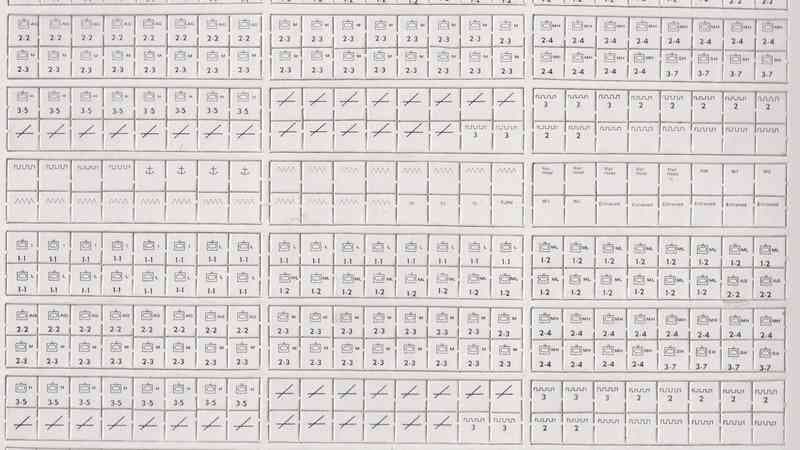 AG AG AG AG AG AG AG AG M M M M M M M M MH MH MH MH MH MH MH MH
2-2 2-2 2-2 2-2 2-2 2-2 2-2 2-2 2-3 2-3 2-3 2-3 2-3 2-3 2-3 2-3 2-4 2-4 2-4 2-4 2-4 2-4 2-4 2-4
M M M M M M M M M M M M M M M M MH MH MH MH
2-3 2-3 2-3 2-3 2-3 2-3 2-3 2-3 2-3 2-3 2-3 2-3 2-3 2-3 2-3 2-3 2-4 2-4 2-4 2-4 3-7 3-7 3-7 3-7
H H H H H H H H
3-5 3-5 3-5 3-5 3-5 3-5 3-5 3-5 3 3 3 2 2 2 2 2
3 3 2 2
Entrained Entrained Entrained Entrained Entrained Entrained
L L L L L L L L L L L L L L ML ML ML ML ML ML ML ML
1-1 1-1 1-1 1-1 1-1 1-1 1-1 1-1 1-1 1-1 1-1 1-1 1-1 1-1 1-1 1-1 1-2 1-2 1-2 1-2 1-2 1-2 1-2 1-2
L L L L L L L ML ML ML ML ML ML ML ML ML ML ML ML ML ML
1-1 1-1 1-1 1-1 1-1 1-1 1-1 1-1 1-2 1-2 1-2 1-2 1-2 1-2 1-2 1-2 1-2 1-2 1-2 1-2 1-2 1-2 2-2 2-2
AG AG AG AG AG AG AG AG M M M M M M M M MH MH MH MH MH MH MH MH
2-2 2-2 2-2 2-2 2-2 2-2 2-2 2-2 2-3 2-3 2-3 2-3 2-3 2-3 2-3 2-3 2-4 2-4 2-4 2-4 2-4 2-4 2-4 2-4
M M M M M M M M M M M M M M M M MH MH MH MH
2-3 2-3 2-3 2-3 2-3 2-3 2-3 2-3 2-3 2-3 2-3 2-3 2-3 2-3 2-3 2-3 2-4 2-4 2-4 2-4 3-7 3-7 3-7 3-7
H H H H H H H H
3-5 3-5 3-5 3-5 3-5 3-5 3-5 3-5 3 3 3 2 2 2 2 2
3 3 2 2